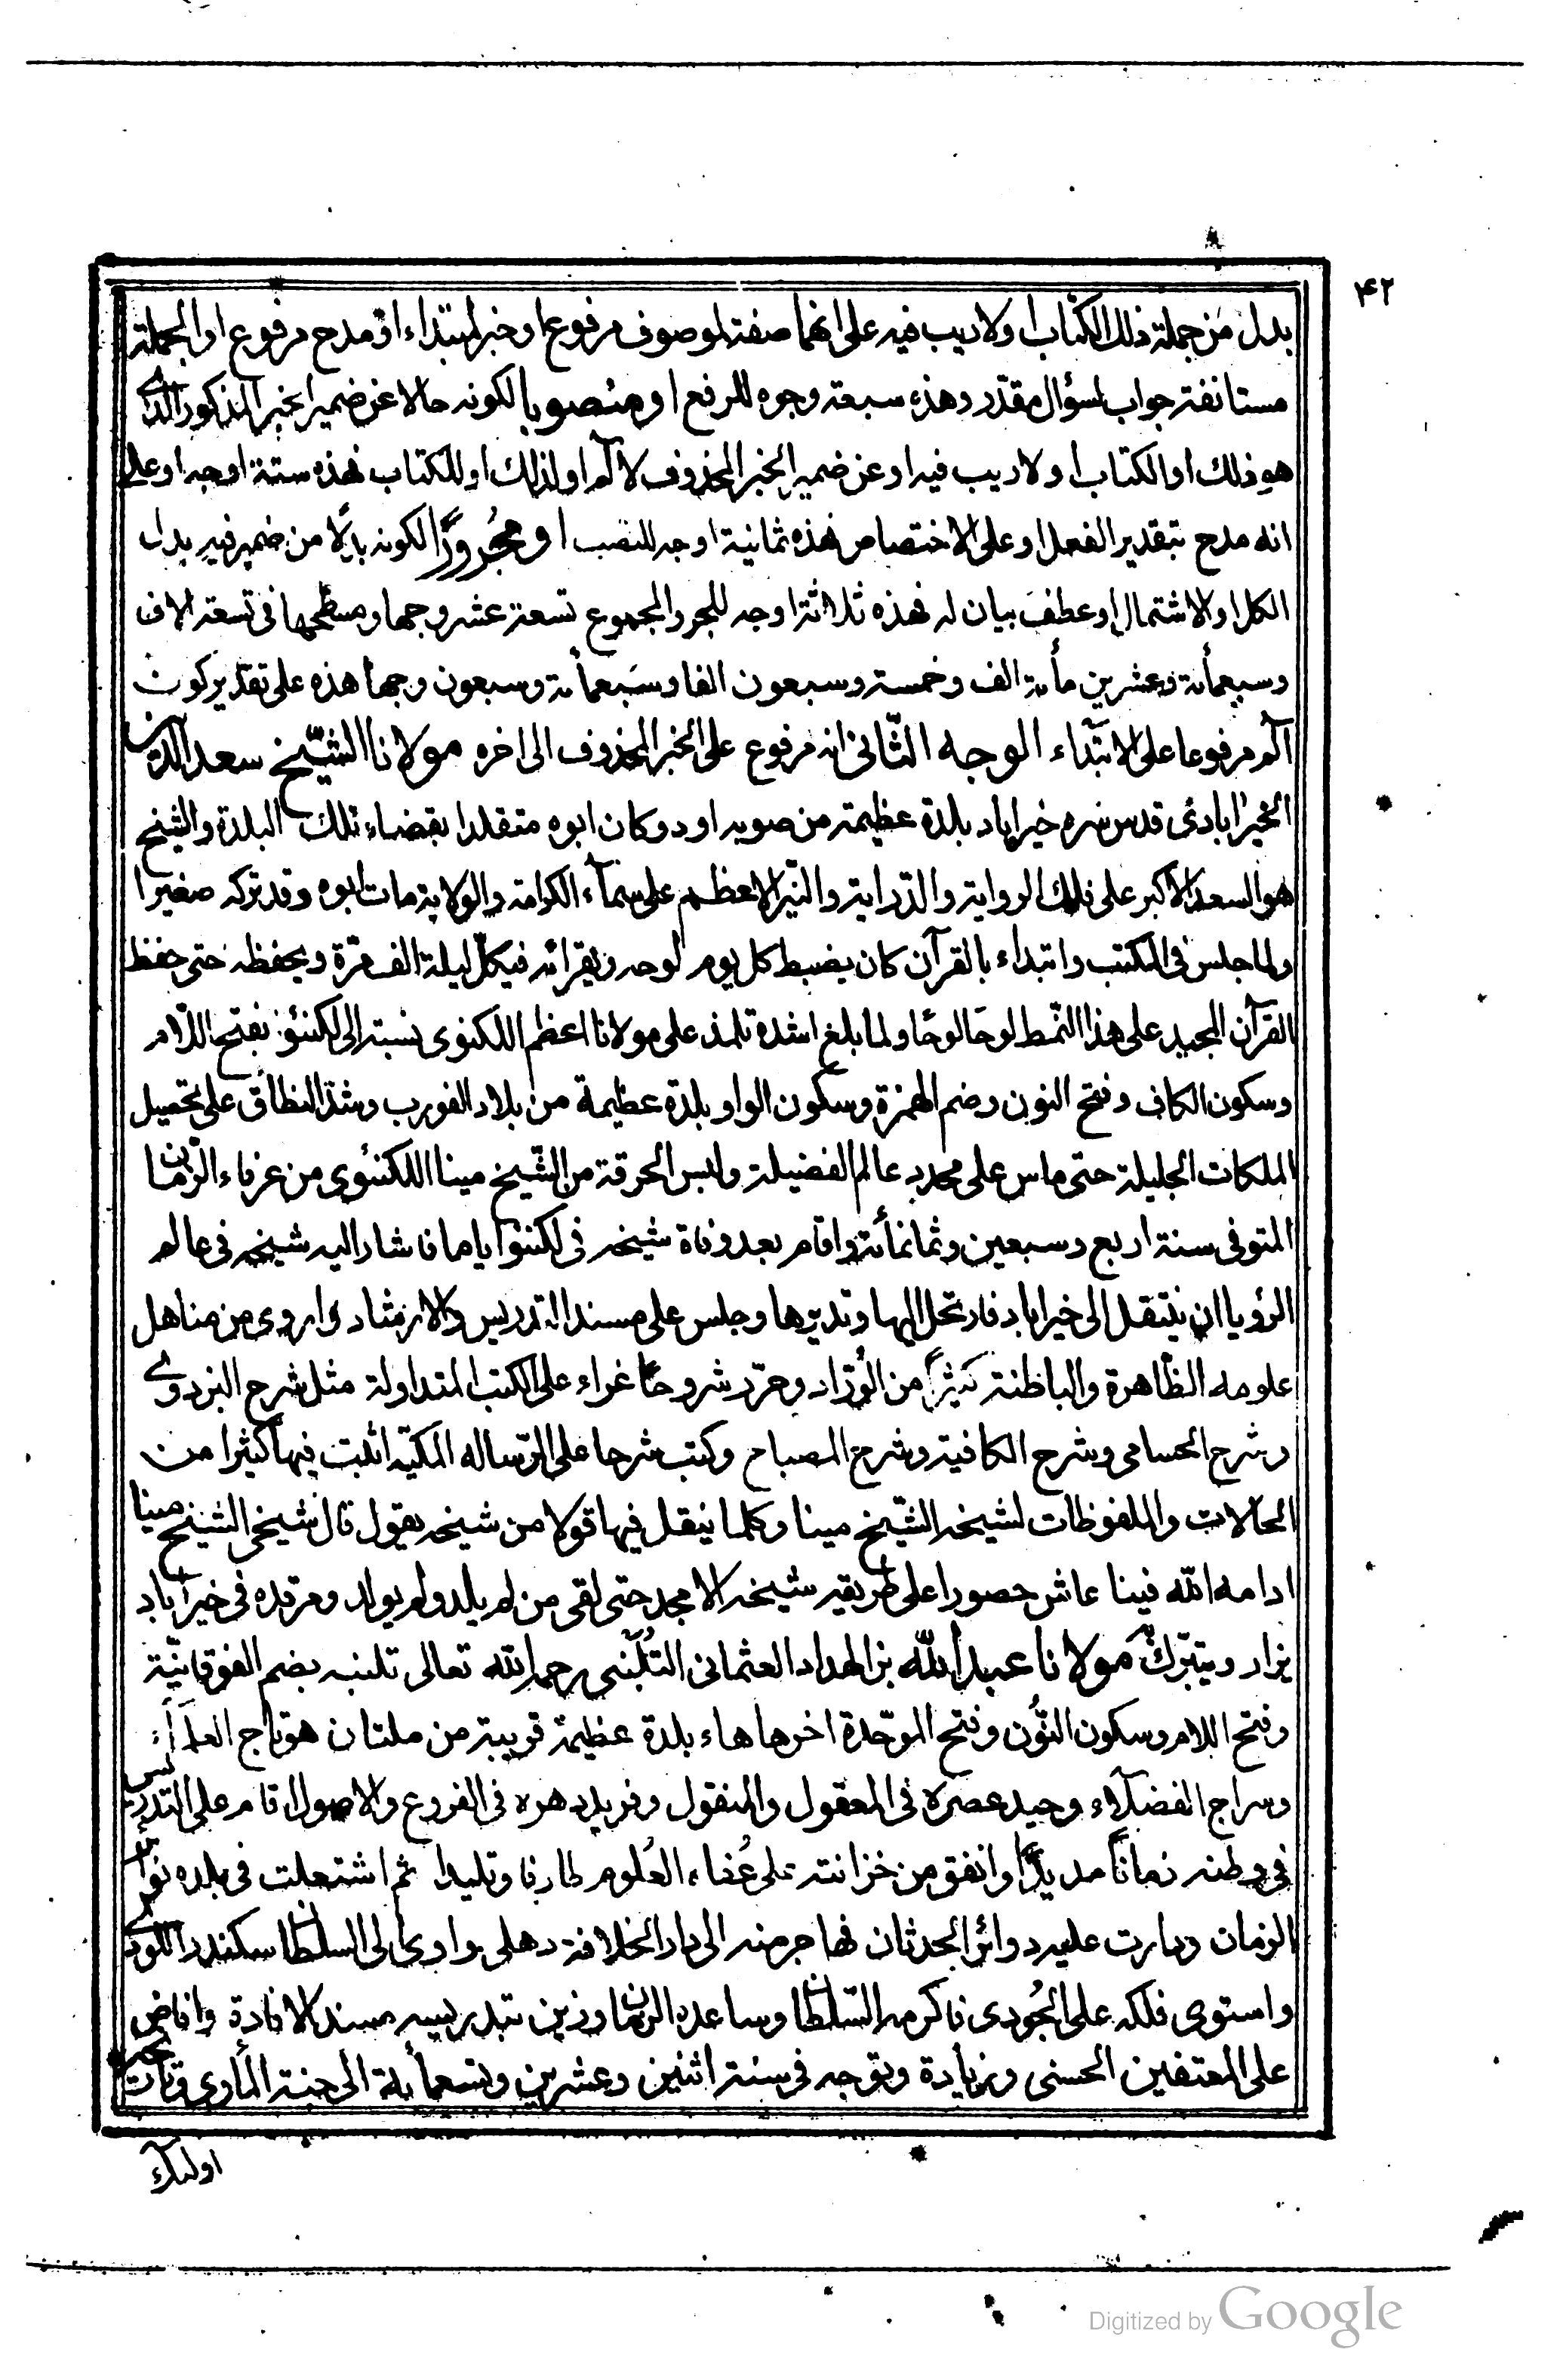 ۴۲
بدل من جملة ذلك الكتاب او لا ريب فيه على انهما صفة لموصوف مرفوعا و خبر لمبتداء او مدح مرفوع او الجملة
مستانفة جواب لسؤال مقدّر وهذه سبعة وجوه للرفع او منصوبا لكونه حالا عن ضمير الخبر المذكور الذى
هو ذلك او الكتاب او لا ريب فيه او عن ضمير الخبر المحذوف لا لم او لذلك او للكتاب فهذه ستة اوجه او على
انه مدح بتقدير الفعل او على الاختصاص فهذه ثمانية اوجه للنصب او مجرورًا لكونه بدلًا من ضمير فيه بدل
الكل او الاشتمال او عطف بيان له فهذه ثلاثة اوجه للجر والمجموع تسعة عشر وجها و مسطحها فى تسعة الاف
وسبعمأة وعشرين مأة الف وخمسة وسبعون الفا وسبعمأة وسبعون وجها هذه على تقدير كون
الم مرفوعا على الابتداء الوجه الثّانى انه مرفوع على الخبر المحذوف الى اخره مولانا الشيّخ سعد الدين
الخير ابادى قدس سره خير اباد بلدة عظيمة من صوبه اود وكان ابوه متقلدا بقضاء تلك البلدة والشيخ
هو السعد الاكبر على فلك الرواية والدّراية والنيّر الاعظم على سمآء الكرامة والولاية مات ابوه وقد تركه صغيرا
ولما جلس فى المكتب وابتداء بالقرآن كان يضبط كل يوم لوحه ويقرائه فيكلّ ليلة الف مرّة ويحفظه حتى حفظ
القرآن المجيد على هذا النّمط لوحا لوحًا ولما بلغ اشده تلمذ على مولانا اعظم اللكنوى نسبة الى لكنئو بفتح اللّام
وسكون الكاف وفتح النون وضم الهمزة وسكون الواو بلدة عظيمة من بلاد الفورب وشدّ النطاق على تحصيل
الملكات الجليلة حتى ماس على محدد عالم الفضيلة ولبس الخرقة من الشّيخ مينا اللكنئوى من عرفاء الزمان
المتوفى سنة اربع وسبعين وثمانمأة واقام بعد وفاة شيخه فى لكنئو اياما فاشار اليه شيخه فى عالم
الرؤيا ان ينتقل الى خير اباد فارتحل اليها وتديرها وجلس على مسند التدريس والارشاد واروى من مناهل
علومه الظّاهرة والباطنة كثيرًا من الورّاد وحرّر شروحًا غراء على الكتب المتداولة مثل شرح البزدوى
وشرح الحسامى وشرح الكافية وشرح المصباح وكتب شرحا على الرّساله المكيّه اثبت فيها كثيرا من
الحالات والملفوظات لشيخه الشّيخ مينا وكلما ينقل فيها قولا من شيخه يقول قال شيخى الشيخ مينا
ادامه الله فينا عاش حصورا على طريقه شيخه الامجد حتى لقى من لم يلد ولم يولد ومرقده فى خير اباد
يزار ويتبرّك مولانا عبد الله بن الهداد العثمانى التُلنبى رحمه الله تعالى تلنبه بضم الفوقانيّة
وفتح اللام وسكون النّون وفتح الموحّدة اخرها هاء بلدة عظيمة قريبة من ملتان هو تاج العلمآء
وسراج الفضلآء وحيد عصره فى المعقول والمنقول وفريد دهره فى الفروع والاصول اقام على التدريس
فى وطنه زمانًا مديدًا وانفق من خزانته على عُفاء العُلوم طارفا وتليدا ثم اشتعلت فى بلده نوائر
الزمان ودارت عليه دوائر الحدثان فهاجر منه الى دار الخلافة دهلى واوى الى السلطان سكندر اللودى
واستوى فلكه على الجُودى فاكرمه السّلطان وساعده الزمان وزين بتدريسه مسند الافادة وافاض
على المعتفين الحسنى وزيادة وتوجه فى سنة اثنين وعشرين وتسعمأية الى جنة المأوى
اولئك
Digitized by Google